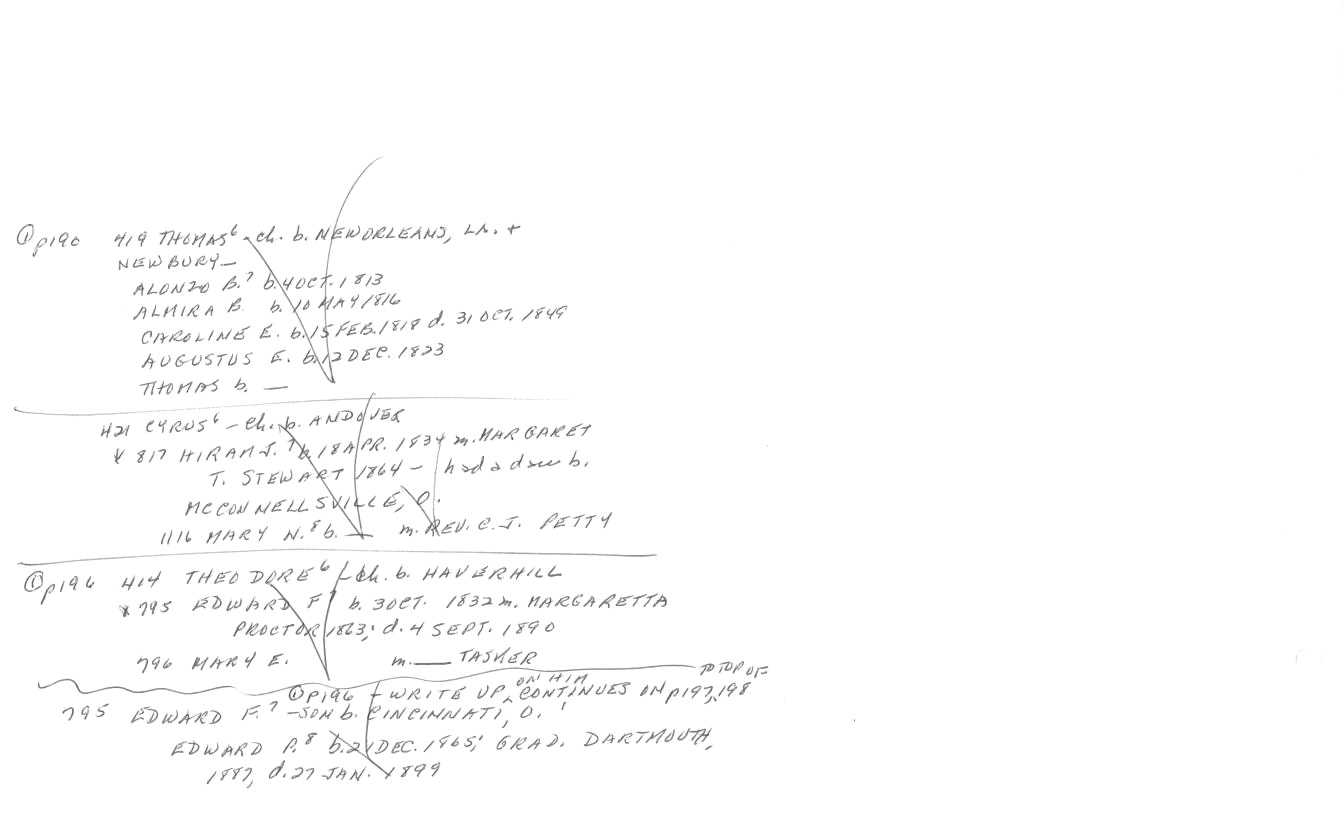 ① p190 419 THOMAS⁶ - ch. b. NEW ORLEANS, LA. +
NEWBURY—
ALONZO B.⁷ b. 4 OCT. 1813
ALMIRA B. b. 10 MAY 1816
CAROLINE E. b. 15 FEB. 1818 d. 31 OCT. 1849
AUGUSTUS E. b. 12 DEC. 1823
THOMAS b. —
421 CYRUS⁶ - ch. b. ANDOVER
x 817 HIRAM J.⁷ b. 18 APR. 1834 m. MARGARET
T. STEWART 1864 - had a dau b.
MCCONNELLSVILLE, O.
1116 MARY N.⁸ b. — m. REV. C. J. PETTY
① p196 414 THEODORE⁶ - ch. b. HAVERHILL
x 795 EDWARD F⁷ b. 3 OCT. 1832 m. MARGARETTA
PROCTOR 1863; d. 4 SEPT. 1890
796 MARY E. m. — TASKER
TO TOP OF
① p196 - WRITE UP ^ ON HIM CONTINUES ON p197, 198
795 EDWARD F.⁷ - SON b. CINCINNATI, O.
EDWARD P.⁸ b. 21 DEC. 1865; GRAD. DARTMOUTH,
1887, d. 27 JAN. 1899